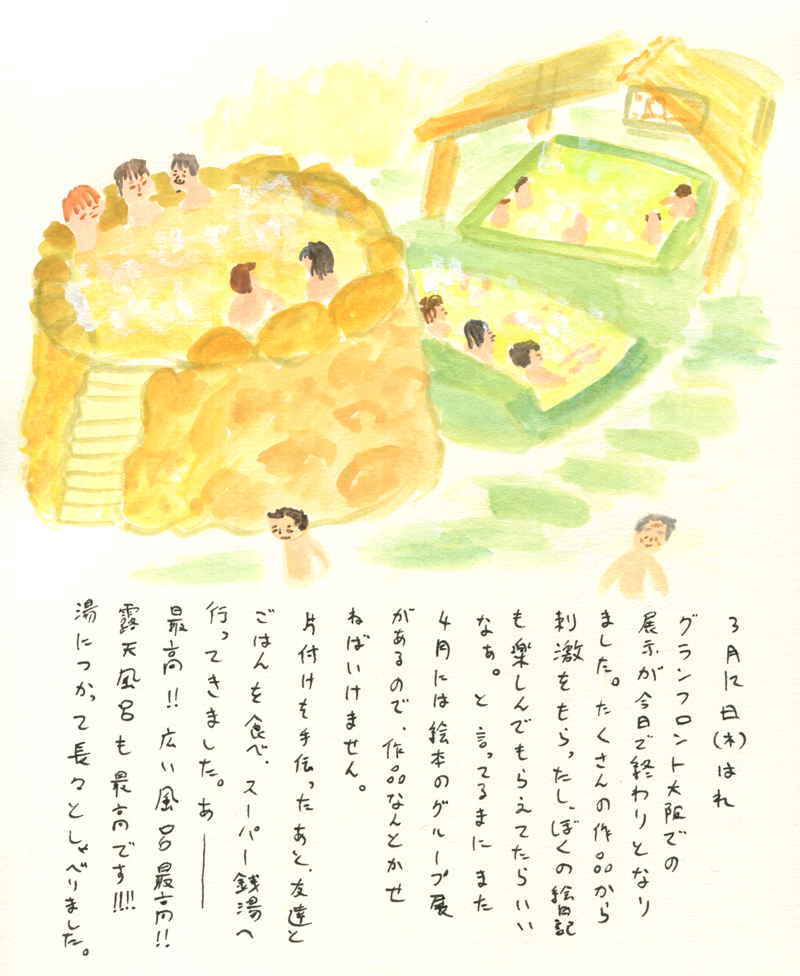 3月12日(木)はれ
グランフロント大阪での
展示が今日で終わりとなり
ました。たくさんの作品から
刺激をもらったし、ぼくの絵日記
も楽しんでもらえてたらいい
なぁ。と言ってるまにまた
4月には絵本のグループ展
があるので、作品なんとかせ
ねばいけません。
片付けを手伝ったあと、友達と
ごはんを食べ、スーパー銭湯へ
行ってきました。あー
最高!!広い風呂最高!!
露天風呂も最高です!!!!
湯につかって長々としゃべりました。